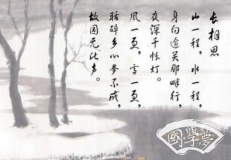 长相思
山一程，水一程，
身向逾关那畔行，
夜深千帐灯。
风一更，雪一更，
聒碎乡心梦不成，
故园无此声。
國學堂